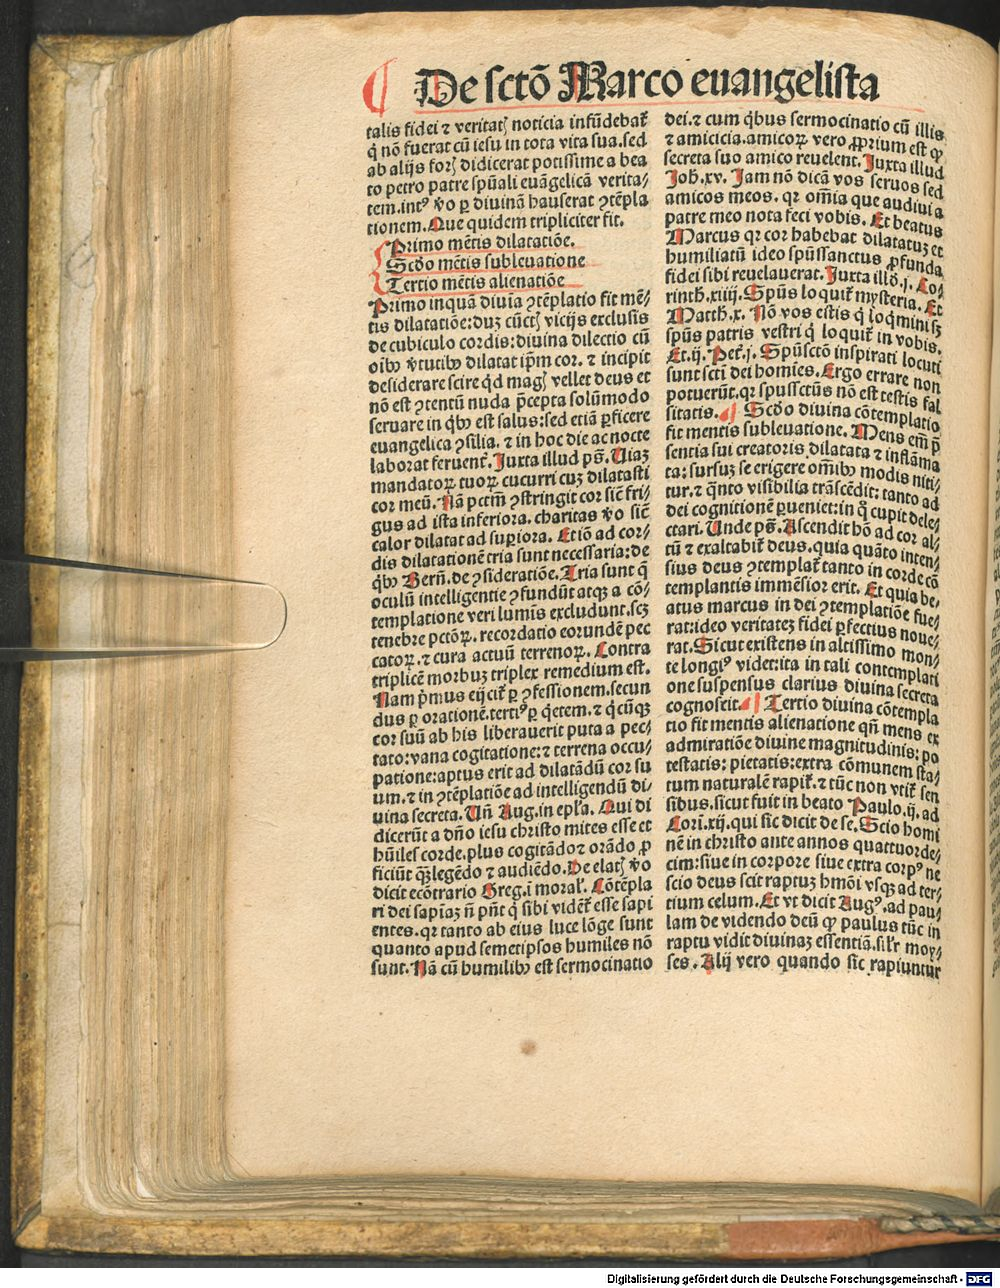 ¶ De sctō Marco euangelista
talis fidei ⁊ veritatꝭ noticia infūdebat̃
q̇ nō fuerat cū iesu in tota vita sua. sed
ab alijs forꝭ didicerat potissime a bea
to petro patre spūali euāgelicā verita⸗
tem. intꝰ v̊o ꝑ diuinā hauserat ꝯtēpla
tionem. Que quidem tripliciter fit.
Primo mētis dilatatiōe.
Scd̊o mētis subleuatione
Tertio mētis alienatiōe
Primo inquā diuīa ꝯtēplatio fit mē⸗
tis dilatatiōe: duꝫ cūctꝭ vicijs exclusis
de cubiculo cordis: diuina dilectio cū
oībꝰ v̓tutibꝰ dilatat ip̄m cor. ⁊ incipit
desiderare scire qd̓ magꝭ vellet deus et
nō est ꝯtentū nuda p̄cepta solūmodo
seruare in qͥbꝰ est salus: sed etiā ꝑficere
euangelica ꝯsilia. ⁊ in hoc die ac nocte
laborat feruent̓. Juxta illud pͦs. Uiaꝫ
mandatoꝝ tuoꝝ cucurri cuꝫ dilatasti
cor meū. Nā pctm̄ ꝯstringit cor sic̄ fri⸗
gus ad ista inferiora. charitas v̊o sic̄
calor dilatat ad suꝑiora. Et iō ad cor⸗
dis dilatationē tria sunt necessaria: de
qͥbꝰ Bern̄. de ꝯsideratiōe. Tria sunt q̄
oculū intelligentie ꝯfundūt atqꝫ a cō⸗
templatione veri lumīs excludunt. scꝫ
tenebre pctōꝝ. recordatio eorundē pec
catoꝝ. ⁊ cura actuū terrenoꝝ. Contra
triplicē morbuꝫ triplex remedium est.
Nam p̓mus eijcit̃ ꝑ ꝯfessionem. secun
dus ꝑ orationē. tertiꝰ ꝑ q̇etem. ⁊ q̇cūqꝫ
cor suū ab his liberauerit puta a pec⸗
cato: vana cogitatione: ⁊ terrena occu⸗
patione: aptus erit ad dilatādū cor su
um. ⁊ in ꝯtēplatiōe ad intelligendū di⸗
uina secreta. Un̄ Aug. in ep̄la. Qui di
dicerūt a dn̄o iesu christo mites esse et
hūiles corde. plus cogitādo ⁊ orādo ꝓ
ficiūt qꝫ legēdo ⁊ audiēdo. De elatꝭ v̊o
dicit ecōtrario Greg. ī moral̓. Cōtēpla
ri dei sapīaꝫ n̄ pn̄t q̇ sibi vident̃ esse sapi
entes. qꝛ tanto ab eius luce lōge sunt
quanto apud semetipsos humiles nō
sunt. Nā cū humilibꝰ est sermocinatio
dei. ⁊ cum qͥbus sermocinatio cū illis
⁊ amicicia. amicoꝝ vero ꝓprium est ꝙ
secreta suo amico reuelent. Juxta illud
Joh̓. xv. Jam nō dicā vos seruos sed
amicos meos. qꝛ om̄ia que audiui a
patre meo nota feci vobis. Et beatus
Marcus qꝛ cor habebat dilatatuꝫ et
humiliatū ideo spūssanctus ꝓfunda
fidei sibi reuelauerat. Juxta illd̓. j. Co⸗
rinth. xiiij. Spūs loquit̃ mysteria. Et
Matth. x. Nō vos estis q̇ loq̇mini sꝫ
spūs patris vestri q̇ loquit̃ in vobis.
Et. ij. Pet̓. j. Spūsctō inspirati locuti
sunt scti dei hoīes. Ergo errare non
potuerūt. qꝛ spussctūs nō est testis fal
sitatis. ¶ Scd̊o diuina cōtemplatio
fit mentis subleuatione. Mens em̄ p̄
sentia sui creatoris dilatata ⁊ inflāma
ta: sursuꝫ se erigere om̄ibꝰ modis niti⸗
tur. ⁊ qͣnto visibilia trāscēdit: tanto ad
dei cognitionē ꝑueniet: in qͦ cupit dele⸗
ctari. Unde pͦs. Ascendit hō ad cor al⸗
tū ⁊ exaltabit̃ deus. quia quāto inten⸗
sius deus ꝯtemplat̃ tanto in corde cō
templantis immēsior erit. Et quia be⸗
atus marcus in dei ꝯtemplatiōe fue⸗
rat: ideo veritateꝫ fidei ꝑfectius noue⸗
rat. Sicut existens in altissimo mon⸗
te longiꝰ videt: ita in tali contemplati
one suspensus clarius diuina secreta
cognoscit. ¶ Tertio diuina cōtempla
tio fit mentis alienatione qn̄ mens ex
admiratiōe diuine magnitudinis: po
testatis: pietatis: extra cōmunem sta⸗
tum naturalē rapit̃. ⁊ tūc non vtit̃ sen
sibus. sicut fuit in beato Paulo. ij. ad
Cori. xij. qui sic dicit de se. Scio homi
nē in christo ante annos quattuorde⸗
cim: siue in corpore siue extra corpꝰ ne
scio deus scit raptuꝫ hmōi vsqꝫ ad ter⸗
tium celum. Et vt dicit Augꝰ. ad pau⸗
lam de videndo deū ꝙ paulus tūc in
raptu vidit diuinaꝫ essentiā. sil̓r moy⸗
ses. Alij vero quando sic rapiuntur
Digitalisierung gefördert durch die Deutsche Forschungsgemeinschaft - DFG